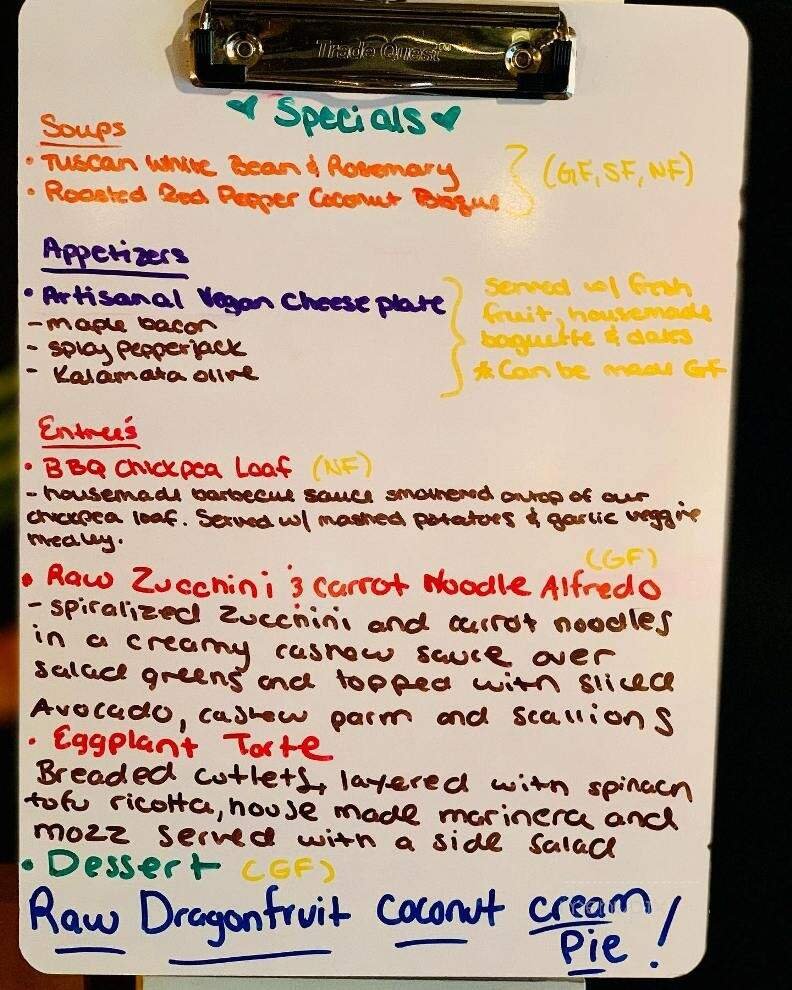 Trade Quest™
Specials
Soups
• Tuscan White Bean & Rosemary
• Roasted Red Pepper Coconut Bisque
(GF, SF, NF)
Appetizers
• Artisanal Vegan Cheese plate
- maple bacon
- spicy pepperjack
- Kalamata olive
Served w/ fresh
fruit, housemade
baguette & dates
* Can be made GF
Entreés
• BBQ Chickpea Loaf (NF)
- housemade barbecue sauce smothered ontop of our
chickpea loaf. Served w/ mashed potatoes & garlic veggie
medley.
(GF)
• Raw Zucchini & Carrot Noodle Alfredo
- spiralized Zucchini and carrot noodles
in a creamy cashew sauce over
salad greens and topped with sliced
Avocado, cashew parm and scallions
• Eggplant Torte
Breaded cutlets, layered with spinach
tofu ricotta, house made marinera and
mozz served with a side salad
• Dessert (GF)
Raw Dragonfruit coconut cream
Pie!